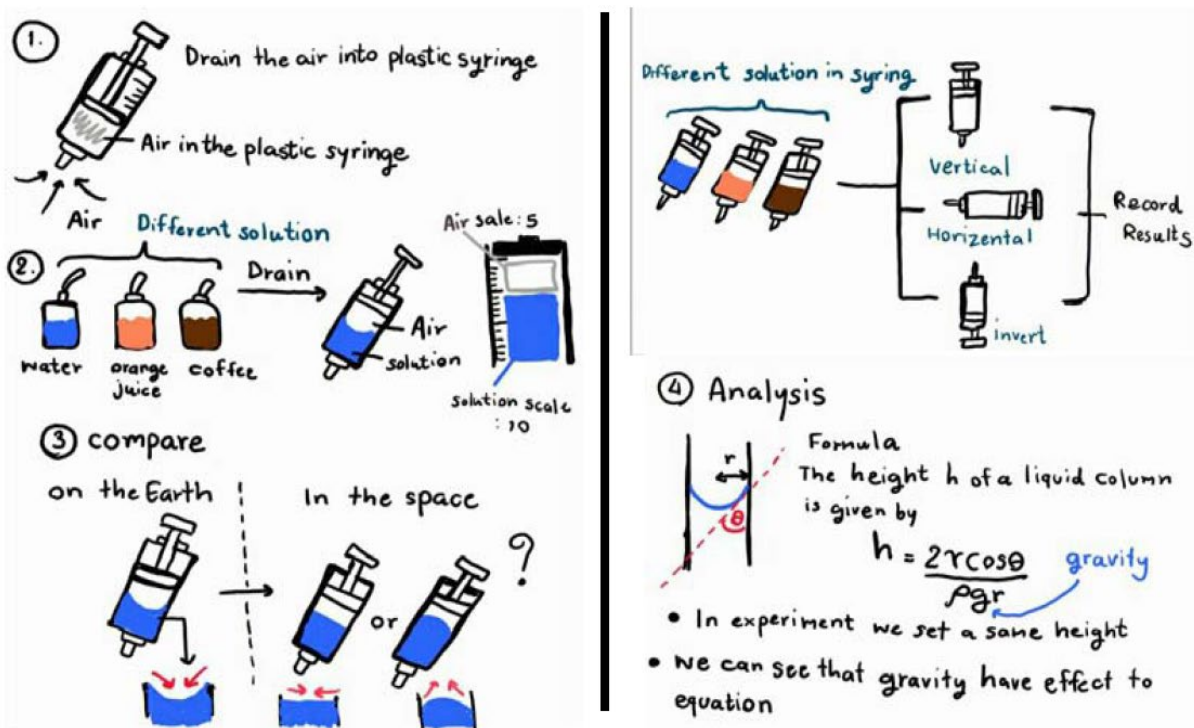 1.
Drain the air into plastic syringe
Air in the plastic syringe
Air
Different solution
2.
Drain
water
orange
juice
coffee
Air
solution
Air sale: 5
solution scale
: 10
3 compare
on the Earth
In the space
or
?
Different solution in syring
Vertical
Horizental
invert
Record
Results
4 Analysis
r
θ
Formula
The height h of a liquid column
is given by
h = 2γcosθ
ρgr
gravity
• In experiment we set a same height
• we can see that gravity have effect to
equation